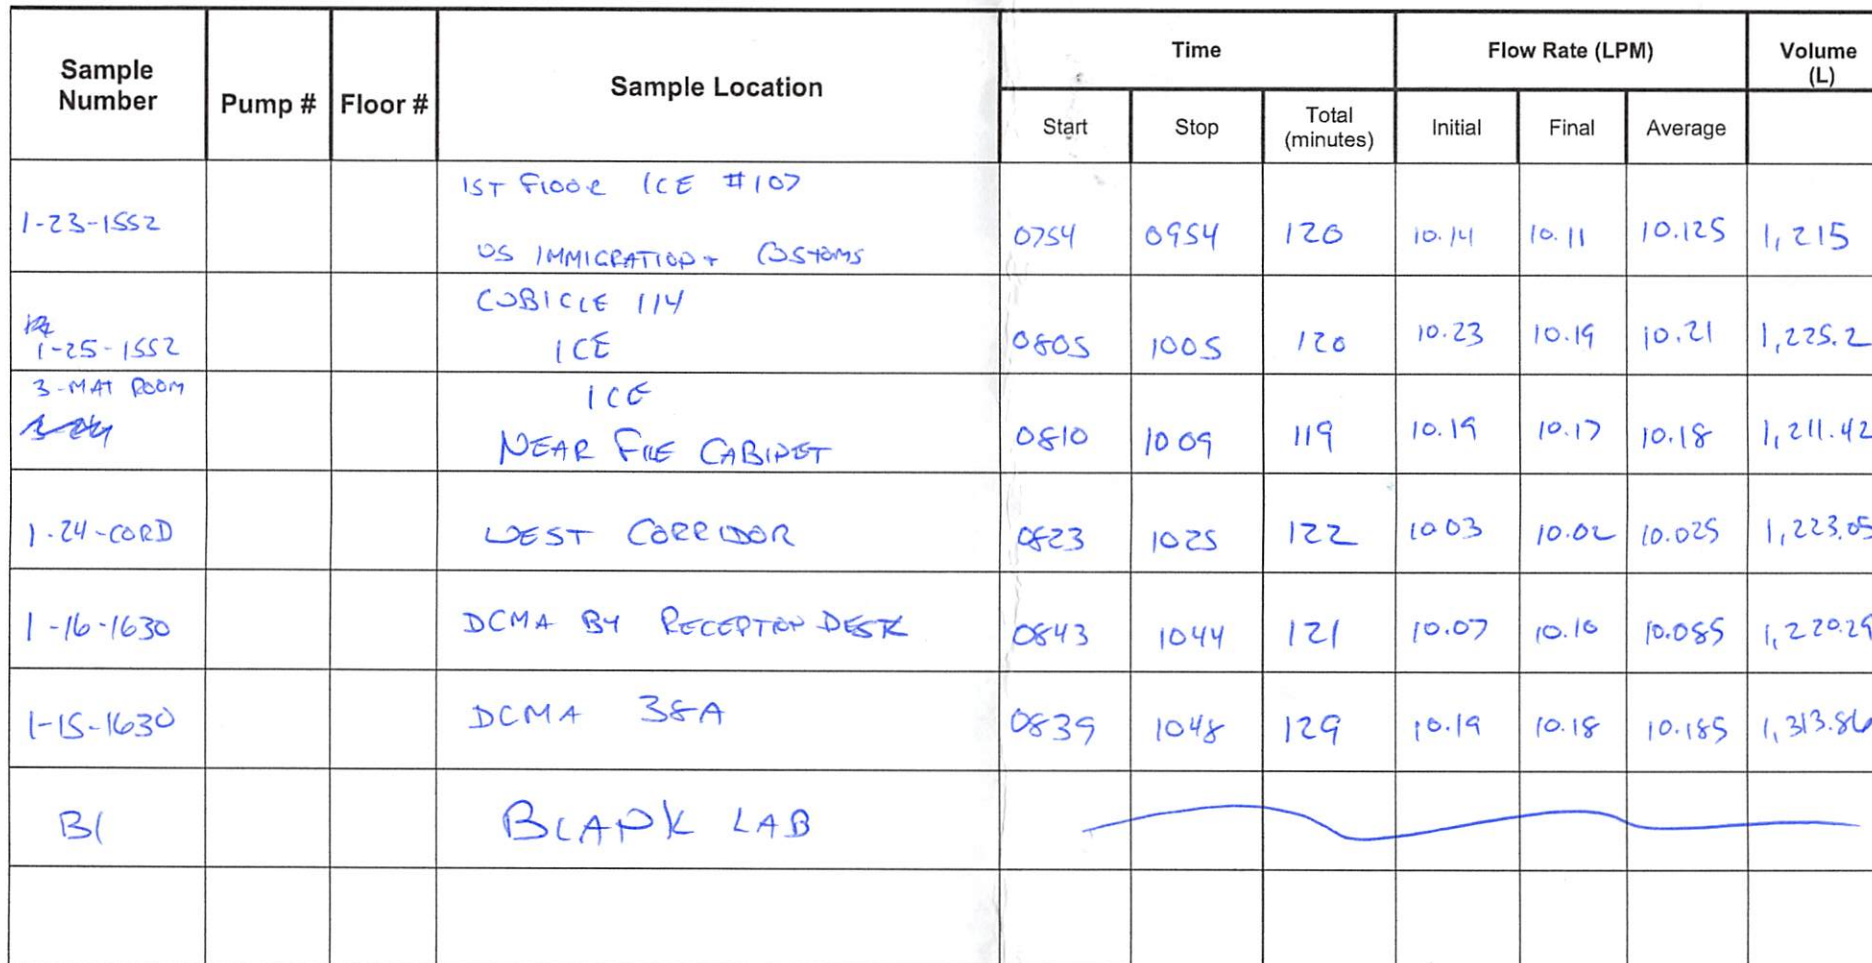 Sample Number Pump # Floor # Sample Location Time Flow Rate (LPM) Volume (L)
Start Stop Total (minutes) Initial Final Average
1-23-1552 1ST FLOOR ICE #107 US IMMIGRATION + CUSTOMS 0754 0954 120 10.14 10.11 10.125 1,215
1-25-1552 CUBICLE 114 ICE 0805 1005 120 10.23 10.19 10.21 1,225.2
3-MAT ROOM ICE NEAR FILE CABINET 0810 1009 119 10.19 10.17 10.18 1,211.42
1-24-CORD WEST CORRIDOR 0823 1025 122 10.03 10.02 10.025 1,223.05
1-16-1630 DCMA BY RECEPTION DESK 0843 1044 121 10.07 10.10 10.085 1,220.29
1-15-1630 DCMA 38A 0839 1048 129 10.19 10.18 10.185 1,313.86
B1 BLANK LAB